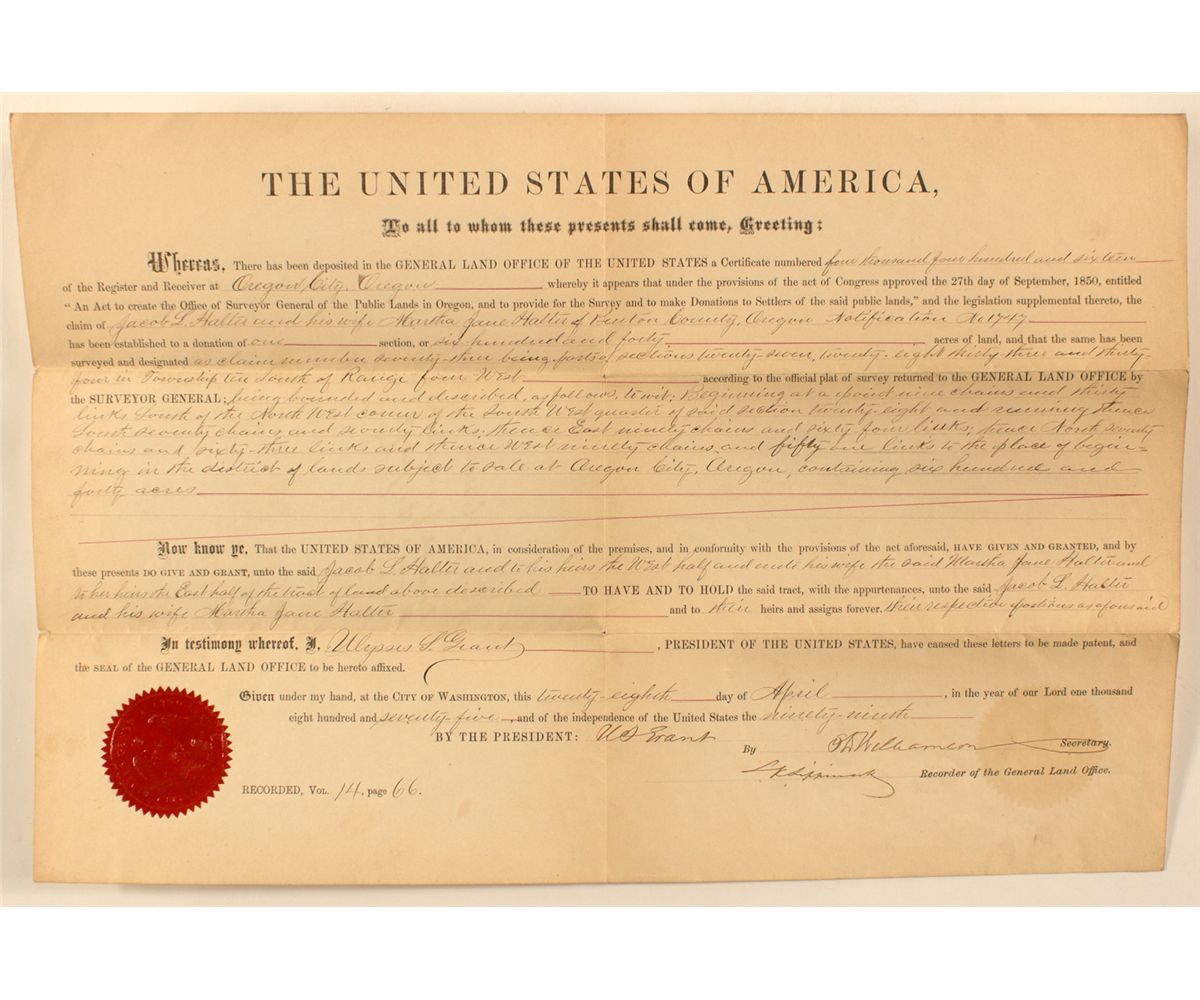 THE UNITED STATES OF AMERICA,
To all to whom these presents shall come, Greeting:
Whereas, There has been deposited in the GENERAL LAND OFFICE OF THE UNITED STATES a Certificate numbered four thousand four hundred and sixteen
of the Register and Receiver at Oregon City, Oregon whereby it appears that under the provisions of the act of Congress approved the 27th day of September, 1850, entitled
"An Act to create the Office of Surveyor General of the Public Lands in Oregon, and to provide for the Survey and to make Donations to Settlers of the said public lands," and the legislation supplemental thereto, the
claim of Jacob L. Halter and his wife Martha Jane Halter of Benton County, Oregon Notification No 1747
has been established to a donation of one section, or six hundred and forty acres of land, and that the same has been
surveyed and designated as claim number seventy-three being parts of sections twenty-seven, twenty-eight thirty-three and thirty-
four in Township ten South of Range four West according to the official plat of survey returned to the GENERAL LAND OFFICE by
the SURVEYOR GENERAL; being bounded and described, as follows, to wit: Beginning at a point nine chains and thirty
links South of the North West corner of the South West quarter of said section twenty-eight and running thence
South seventy chains and seventy links; thence East ninety chains and sixty four links; thence North seventy
chains and sixty-three links and thence West ninety chains and fifty one links to the place of begin-
ning in the district of lands subject to sale at Oregon City, Oregon, containing six hundred and
forty acres
Now know ye, That the UNITED STATES OF AMERICA, in consideration of the premises, and in conformity with the provisions of the act aforesaid, HAVE GIVEN AND GRANTED, and by
these presents DO GIVE AND GRANT, unto the said Jacob L Halter and to his heirs the West half and unto his wife the said Martha Jane Halter and
to her heirs the East half of the tract of land above described TO HAVE AND TO HOLD the said tract, with the appurtenances, unto the said Jacob L. Halter
and his wife Martha Jane Halter and to their heirs and assigns forever. their respective portions as aforesaid
In testimony whereof, I, Ulysses S. Grant, PRESIDENT OF THE UNITED STATES, have caused these letters to be made patent, and
the SEAL of the GENERAL LAND OFFICE to be hereto affixed.
Given under my hand, at the CITY OF WASHINGTON, this twenty-eighth day of April, in the year of our Lord one thousand
eight hundred and seventy five, and of the independence of the United States the ninety-ninth
BY THE PRESIDENT: U S Grant
By D Williamson Secretary.
Recorder of the General Land Office.
RECORDED, VOL. 14, page 66.